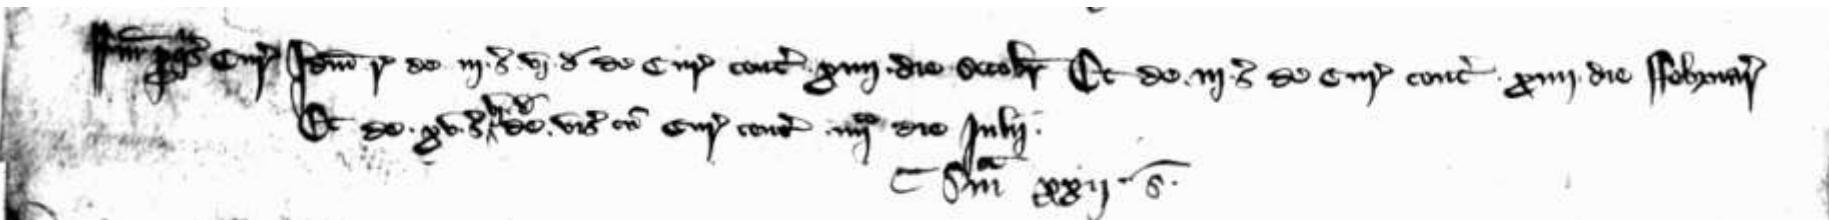 p'quis' Cur' Idem r' de iij. s. vj. d de Cur' tent' . xiiij . die Octobr' Et de . iij . s' de Cur' tent' . xiiij . die Ffebruar'
Et de . xv . s' vj d' de . vis' cu' Cur' tent' . iiijto die Julij .
Sma xxij . s .